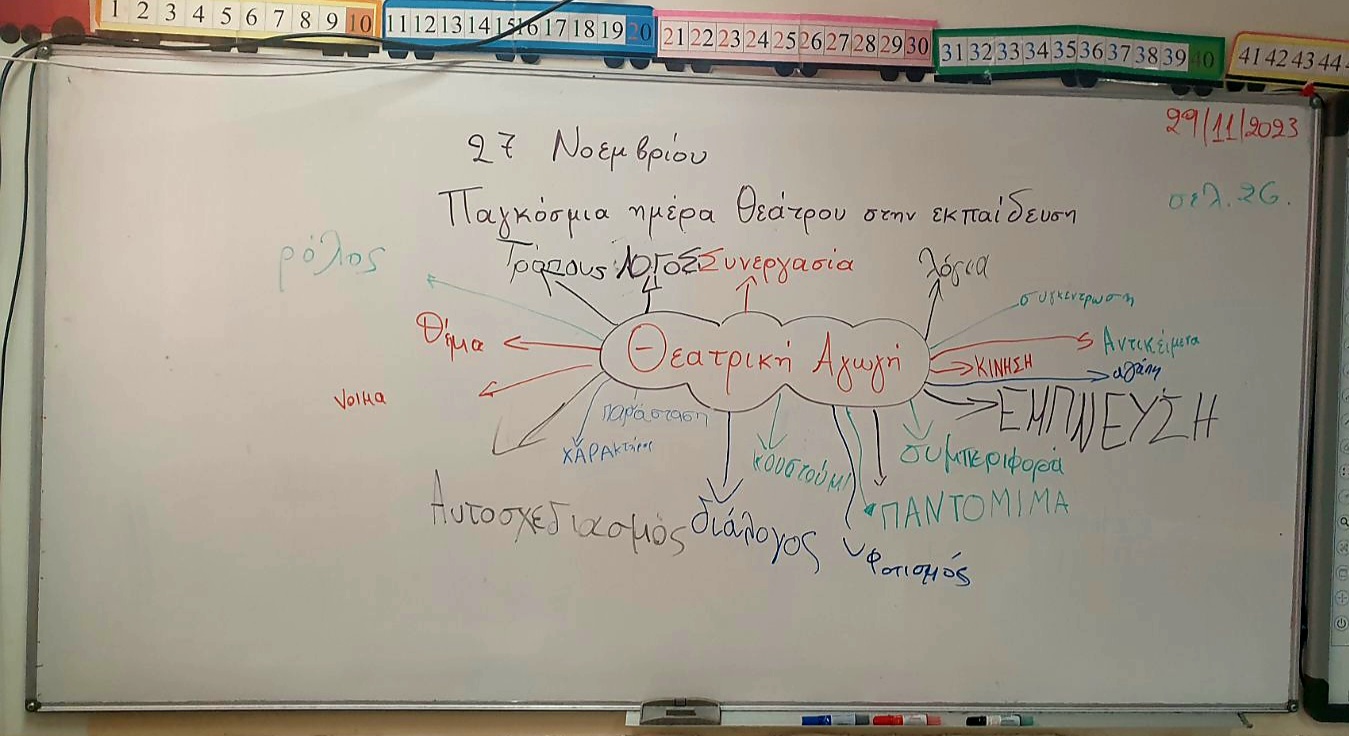 1 2 3 4 5 6 7 8 9 10 11 12 13 14 15 16 17 18 19 20 21 22 23 24 25 26 27 28 29 30 31 32 33 34 35 36 37 38 39 40 41 42 43 44
29/11/2023
27 Νοεμβρίου
σελ. 26.
Παγκόσμια ημέρα Θεάτρου στην εκπαίδευση
ρόλος
Τρόπους ΛΟΓΟΣ Συνεργασία
λόγια
συγκεντρωση
Θέμα
Θεατρική Αγωγή
Αντικείμενα
ΚΙΝΗΣΗ
αγάπη
νοιμα
παράσταση
ΕΜΠΝΕΥΣΗ
ΧΑΡΑΚτήρας
κουστούμι
συμπεριφορά
Αυτοσχεδιασμός
διάλογος
ΠΑΝΤΟΜΙΜΑ
Φοτισμός